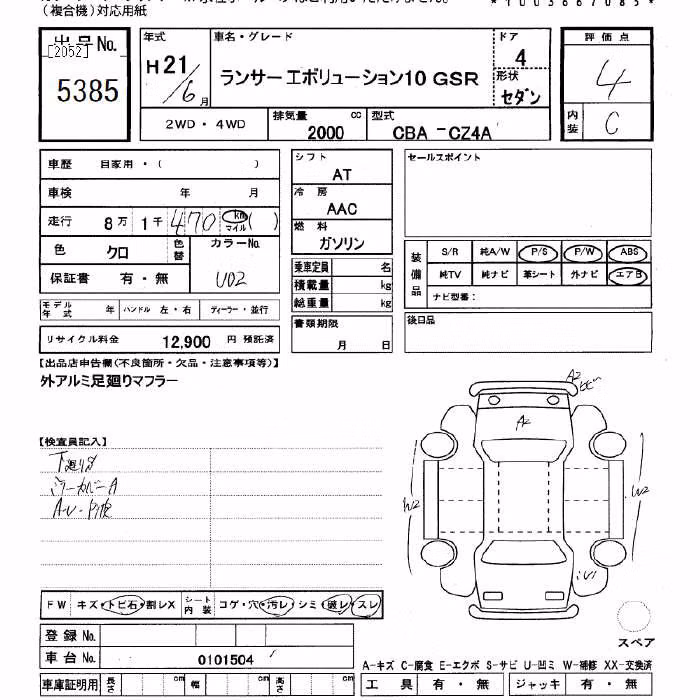 （複合機）対応用紙
出品No.
[2052]
5385
年式
H21／6月
車名・グレード
ランサーエボリューション10 GSR
ドア
4
形状
セダン
評価点
4
内装
C
2WD・4WD
排気量 cc
2000
型式
CBA-CZ4A
車歴 自家用・( )
車検 年 月
走行 8万 1千 470 km マイル ( )
色 クロ
色替
カラーNo.
U02
保証書 有・無
モデル年式 年 ハンドル 左・右 ディーラー・並行
リサイクル料金 12,900 円 預託済
シフト
AT
冷房
AAC
燃料
ガソリン
乗車定員 名
積載量 kg
総重量 kg
書類期限
月 日
セールスポイント
装備品
S/R 純A/W P/S P/W ABS
純TV 純ナビ 革シート 外ナビ エアB
ナビ型番：
後日品
【出品店申告欄(不良箇所・欠品・注意事項等)】
外アルミ足廻りマフラー
【検査員記入】
下廻りS
ミラーカバーA
A2
A2
W2
W2
U1
FW キズ・トビ石・割レX
シート内装 コゲ・穴・汚レ・シミ・破レ・スレ
登録No.
車台No. 0101504
車庫証明用 長さ cm 幅 cm 高さ cm
スペア
A-キズ C-腐食 E-エクボ S-サビ U-凹ミ W-補修 XX-交換済
工具 有・無 ジャッキ 有・無